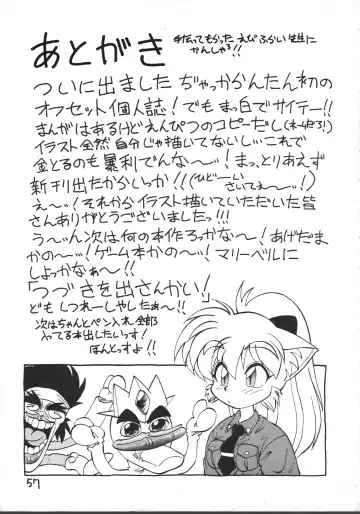 あとがき
手伝ってもらった えぴふかい先生に
かんしゃろ!!
ついに出ました ぢゃっかかんたん初の
オフセット個人誌! でも まっ白でサイテー!!
まんがはあるけど えんぴつのコピーだし
イラスト全然 自分じゃ描いてないし… これで
金とるのも暴利でんな～…! まっ、とりあえず
新刊出たからいっか!! (ひどーい さいてぇ～!!)
え～! それから イラスト描いていただいた皆
さんありがとうございましたっ!!!
う～ん 次は何の本作ろっかな～! あげだま
かの～…! ゲーム本かの～! マリーベルに
しよっかなぁ～!!
「つづきを出さんかい」
ども しつれーしやしたぁ～!!
次はちゃんとペン入れ全部
入ってる本出したいっす!
ほんとっすよ!!
57